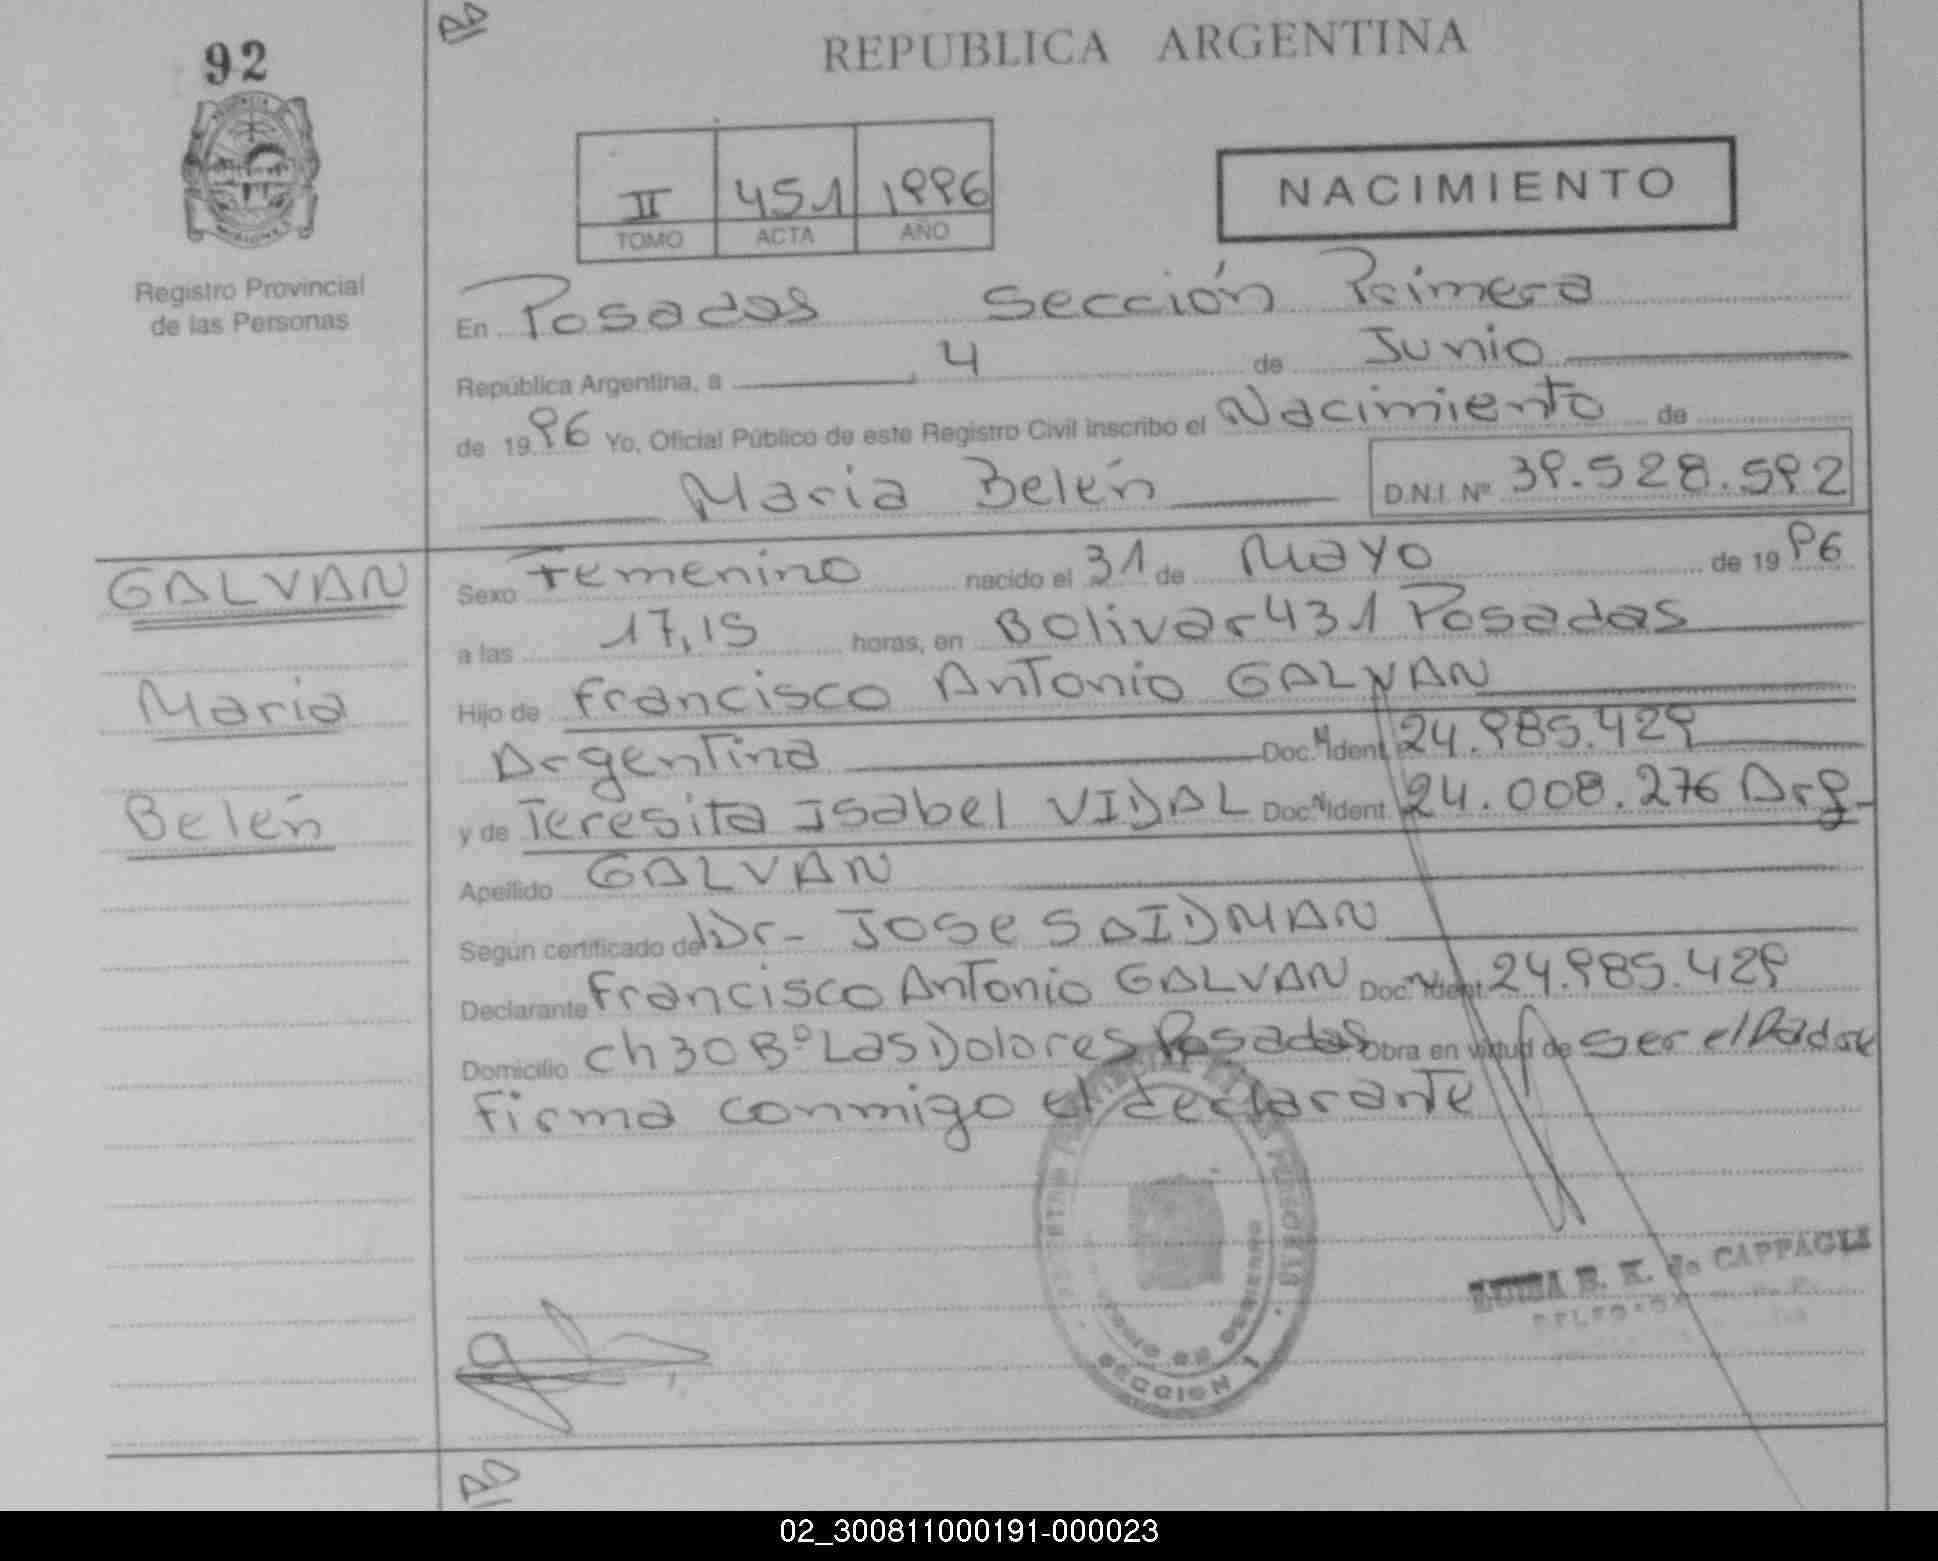 92
REPUBLICA ARGENTINA
II 451 1996
TOMO ACTA AÑO
NACIMIENTO
Registro Provincial
de las Personas
En Posadas Sección Primera
República Argentina, a 4 de Junio
de 1996 Yo, Oficial Público de este Registro Civil inscribo el Nacimiento de
Maria Belén D.N.I. Nº 39.528.592
GALVAN
Maria
Belén
Sexo Femenino nacido el 31 de Mayo de 1996
a las 17,15 horas, en Bolivar 431 Posadas
Hijo de Francisco Antonio GALVAN
Argentina Doc. Ident. 24.985.429
y de Teresita Isabel VIDAL Doc. Ident. 24.008.276 Arg.
Apellido GALVAN
Según certificado de Dr. JOSE SAIDMAN
Declarante Francisco Antonio GALVAN Doc. Ident. 24.985.429
Domicilio Ch 30 Bº Las Dolores Posadas Obra en virtud de ser el Padre
Firma conmigo el declarante
SECCION 1
E. K. de CAPPAGLI
02_300811000191-000023